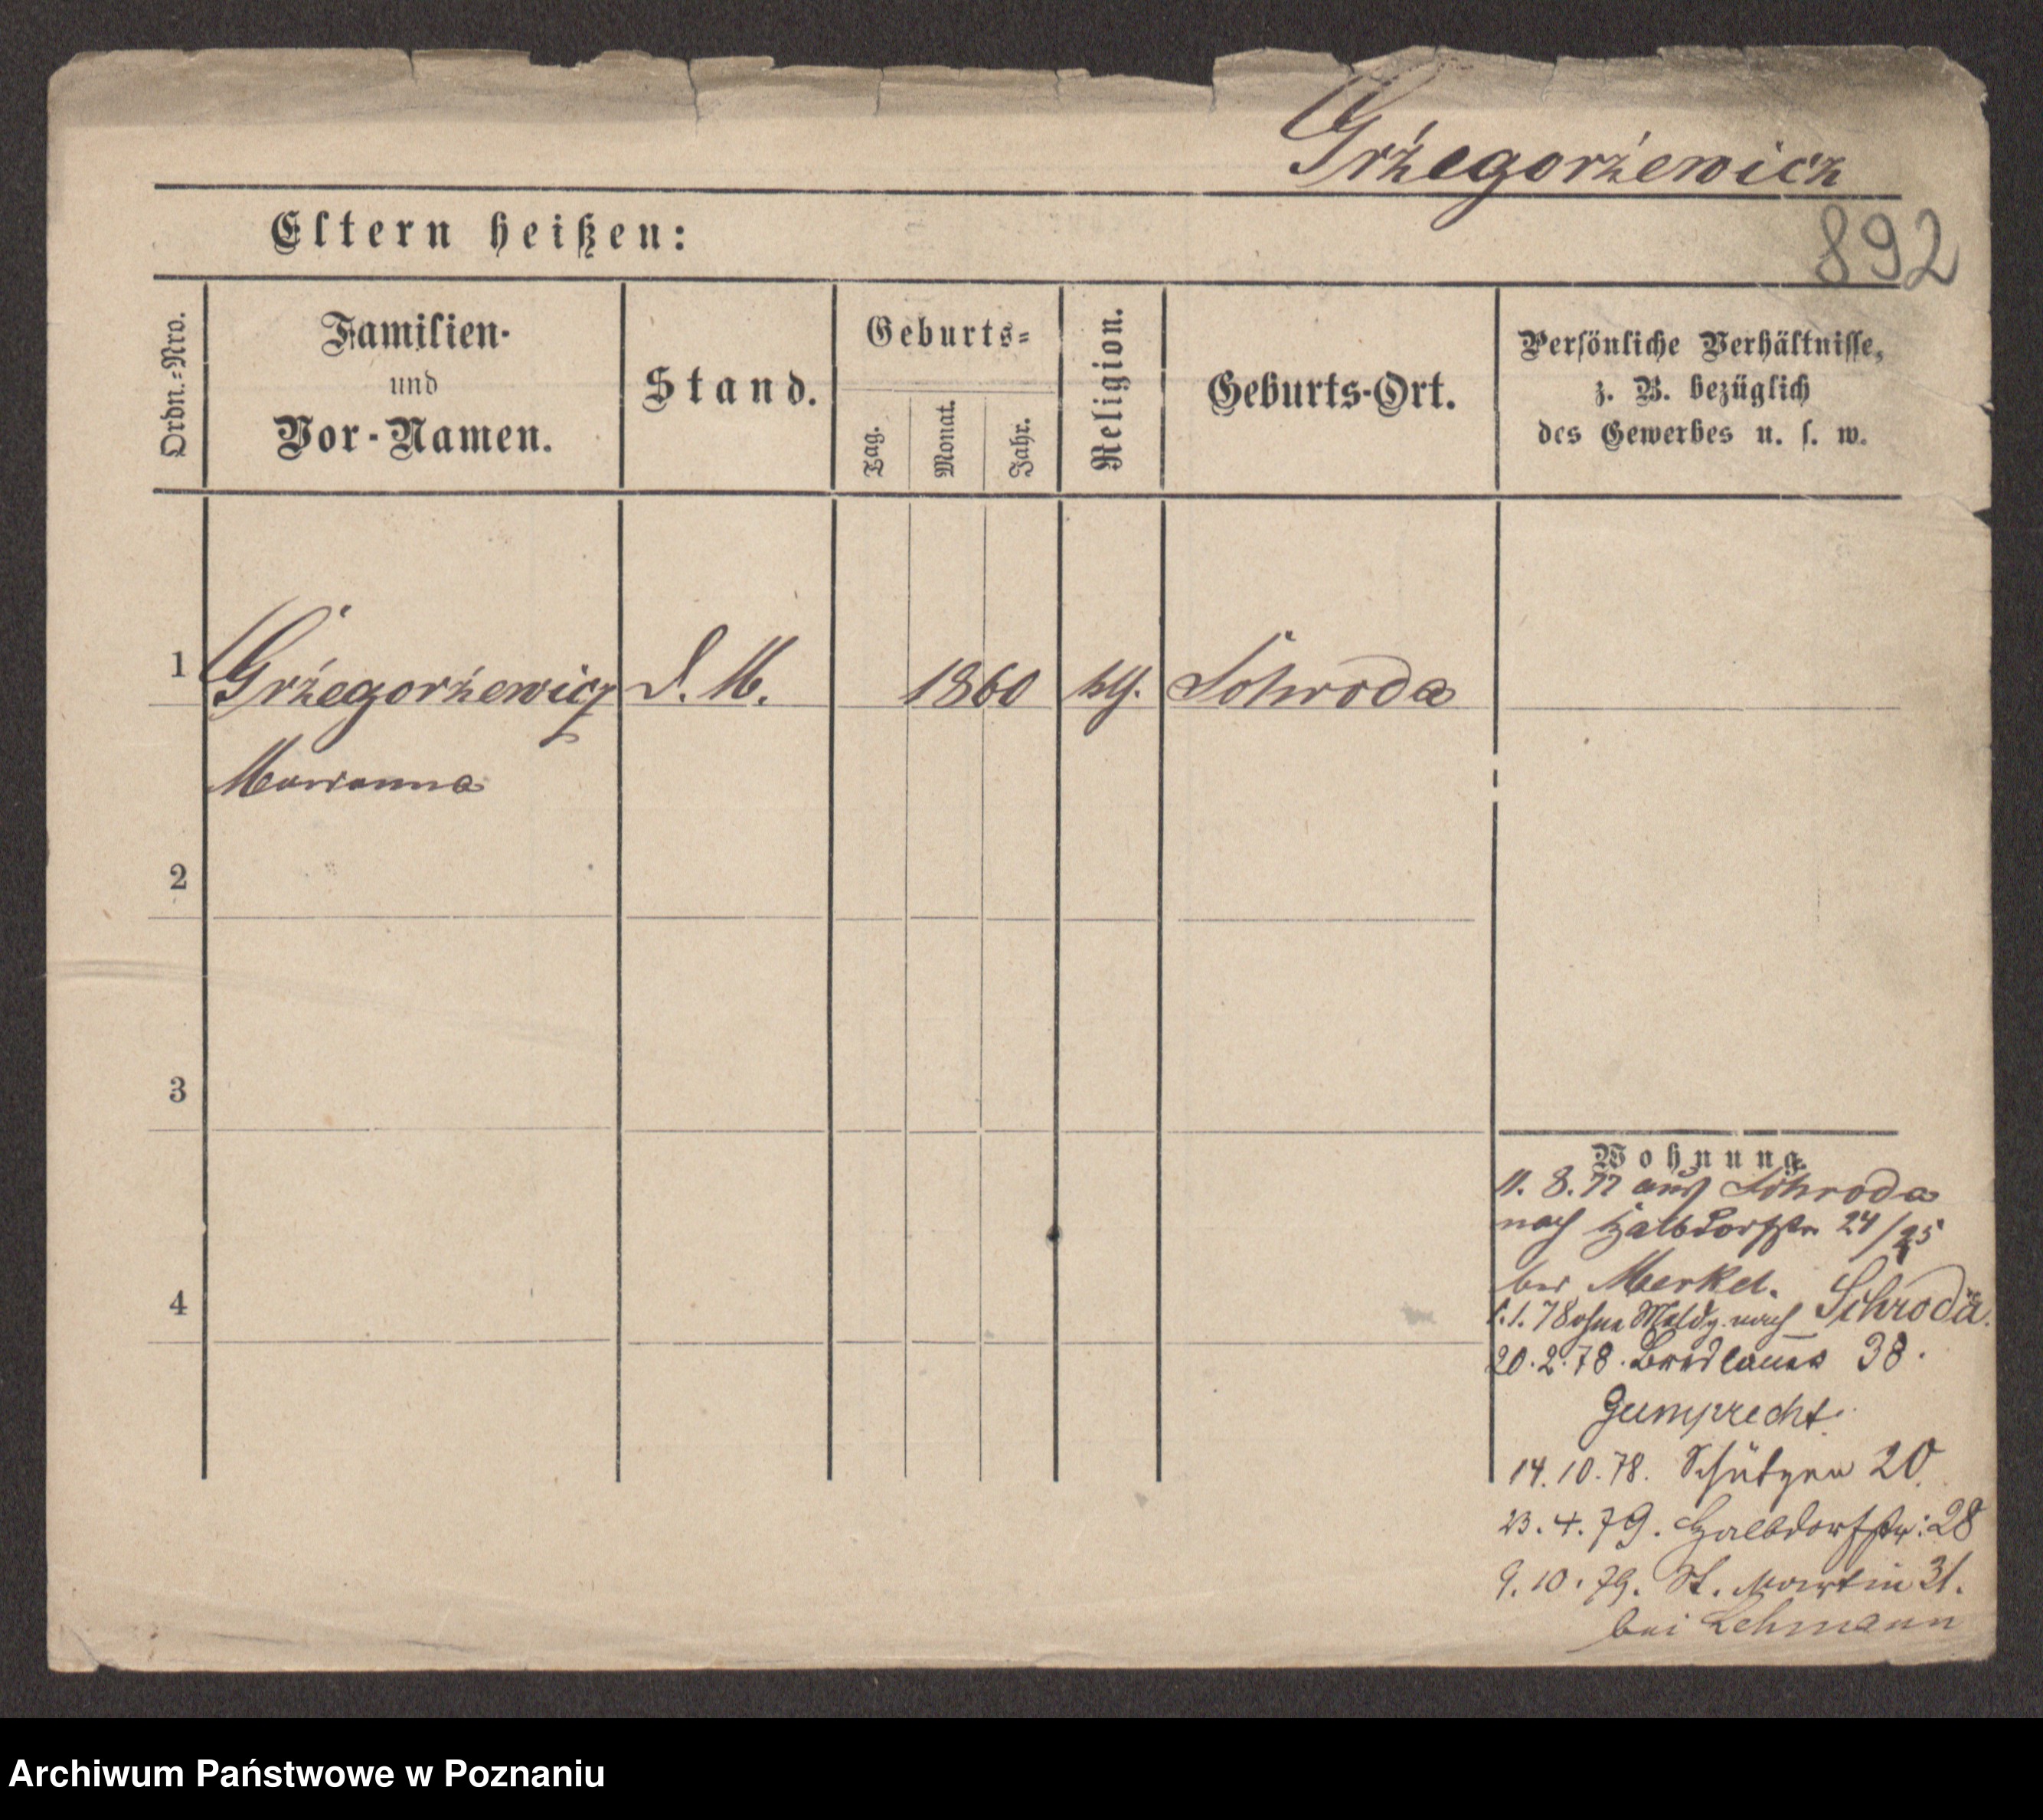 Gŕźegorźewicz
892
Eltern heißen:
Ordn.-Nro.
Familien-
und
Vor-Namen.
Stand.
Geburts-
Tag.
Monat.
Jahr.
Religion.
Geburts-Ort.
Persönliche Verhältnisse,
z. B. bezüglich
des Gewerbes u. s. w.
1
Gŕźegorźewicz D. M. 1860 kth. Schroda
Marianna
2
3
4
Wohnung.
11. 8. 77 aus Schroda
nach Halbdorfstr. 24/25
bei Merkel.
1. 1. 78 ohne Meldg. nach Schroda.
20. 2. 78. 38.
Gumprecht.
14. 10. 78. Schützen 20
23. 4. 79. Halbdorfstr: 28
9. 10. 79. St. Martin 31.
bei Lehmann
Archiwum Państwowe w Poznaniu